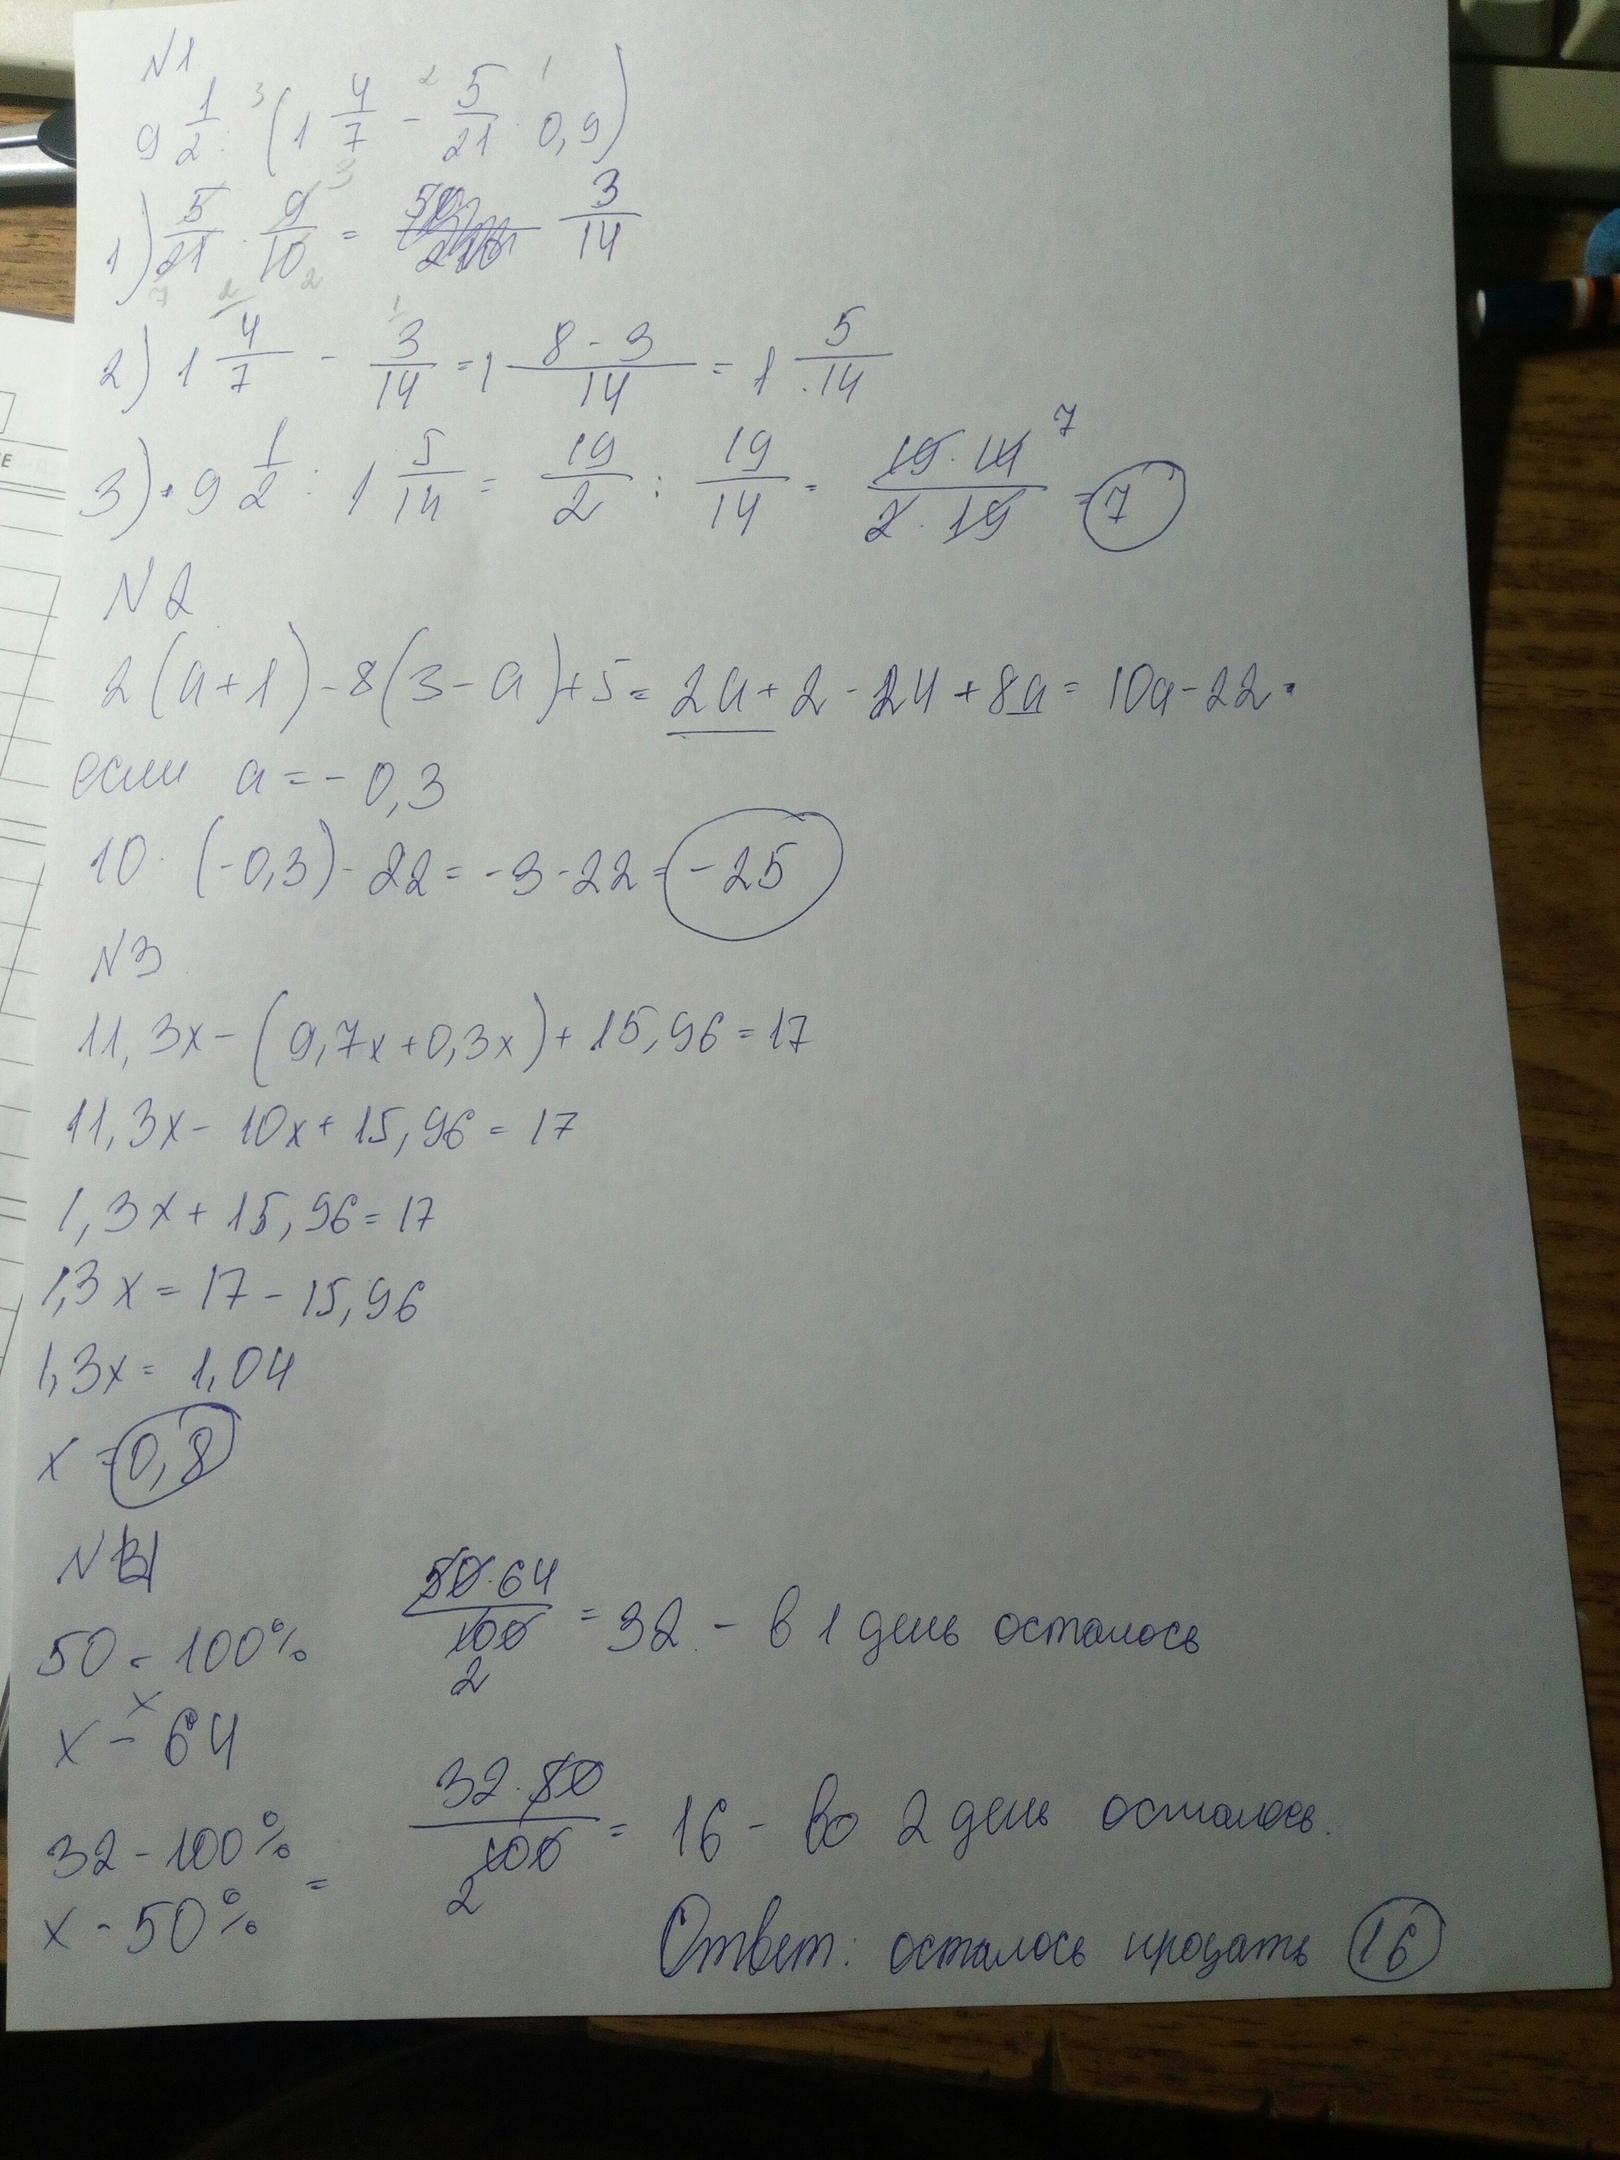 N1
9 1/2 : (1 4/7 - 5/21 · 0,9)
1) 5/21 · 9/10 = 3/14
2) 1 4/7 - 3/14 = 1 (8 - 3)/14 = 1 5/14
3) 9 1/2 : 1 5/14 = 19/2 : 19/14 = (19 · 14)/(2 · 19) = 7
N2
2(a+1) - 8(3-a)+5 = 2a+2-24+8a = 10a-22
если a = -0,3
10 · (-0,3) - 22 = -3-22 = -25
N3
11,3x - (9,7x+0,3x) + 15,96 = 17
11,3x - 10x + 15,96 = 17
1,3x + 15,96 = 17
1,3x = 17 - 15,96
1,3x = 1,04
x = 0,8
50 - 100%
x - 64
50·64/100 = 32 - в 1 день осталось
32 - 100%
x - 50% =
32·50/100 = 16 - во 2 день осталось.
Ответ: осталось продать 16